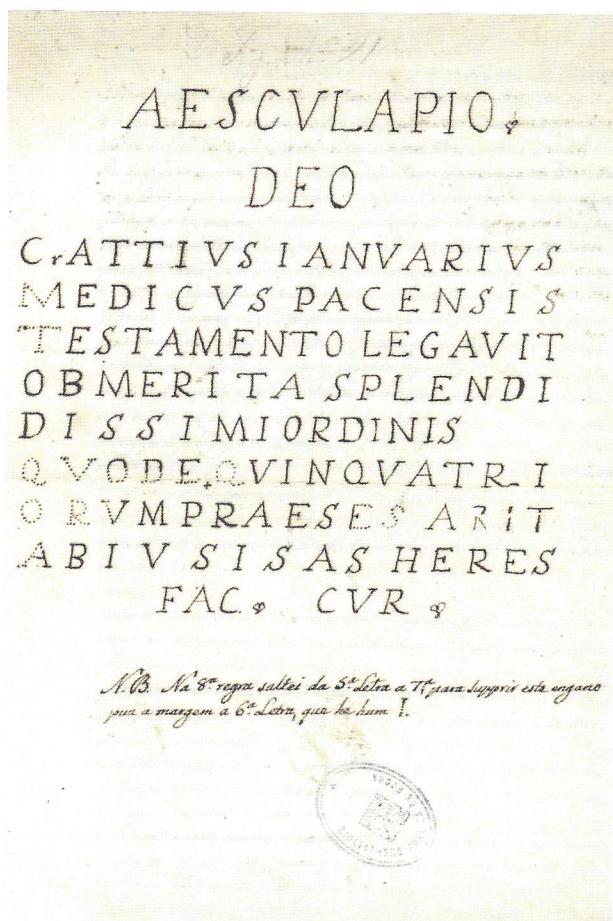 AESCVLAPIO
DEO
C. ATTIVS IANVARIVS
MEDICVS PACENSIS
TESTAMENTO LEGAVIT
OB MERITA SPLENDI
DISSIMI ORDINIS
QVOD E. QVINQVATRI
ORVM PRAESES ARIT
ABIVS ISAS HERES
FAC. CVR
N.B. Na 8.ª regra saltei da 5.ª Letra a 7.ª, para supprir este engano
pus a margem a 6.ª Letra, que he hum I.